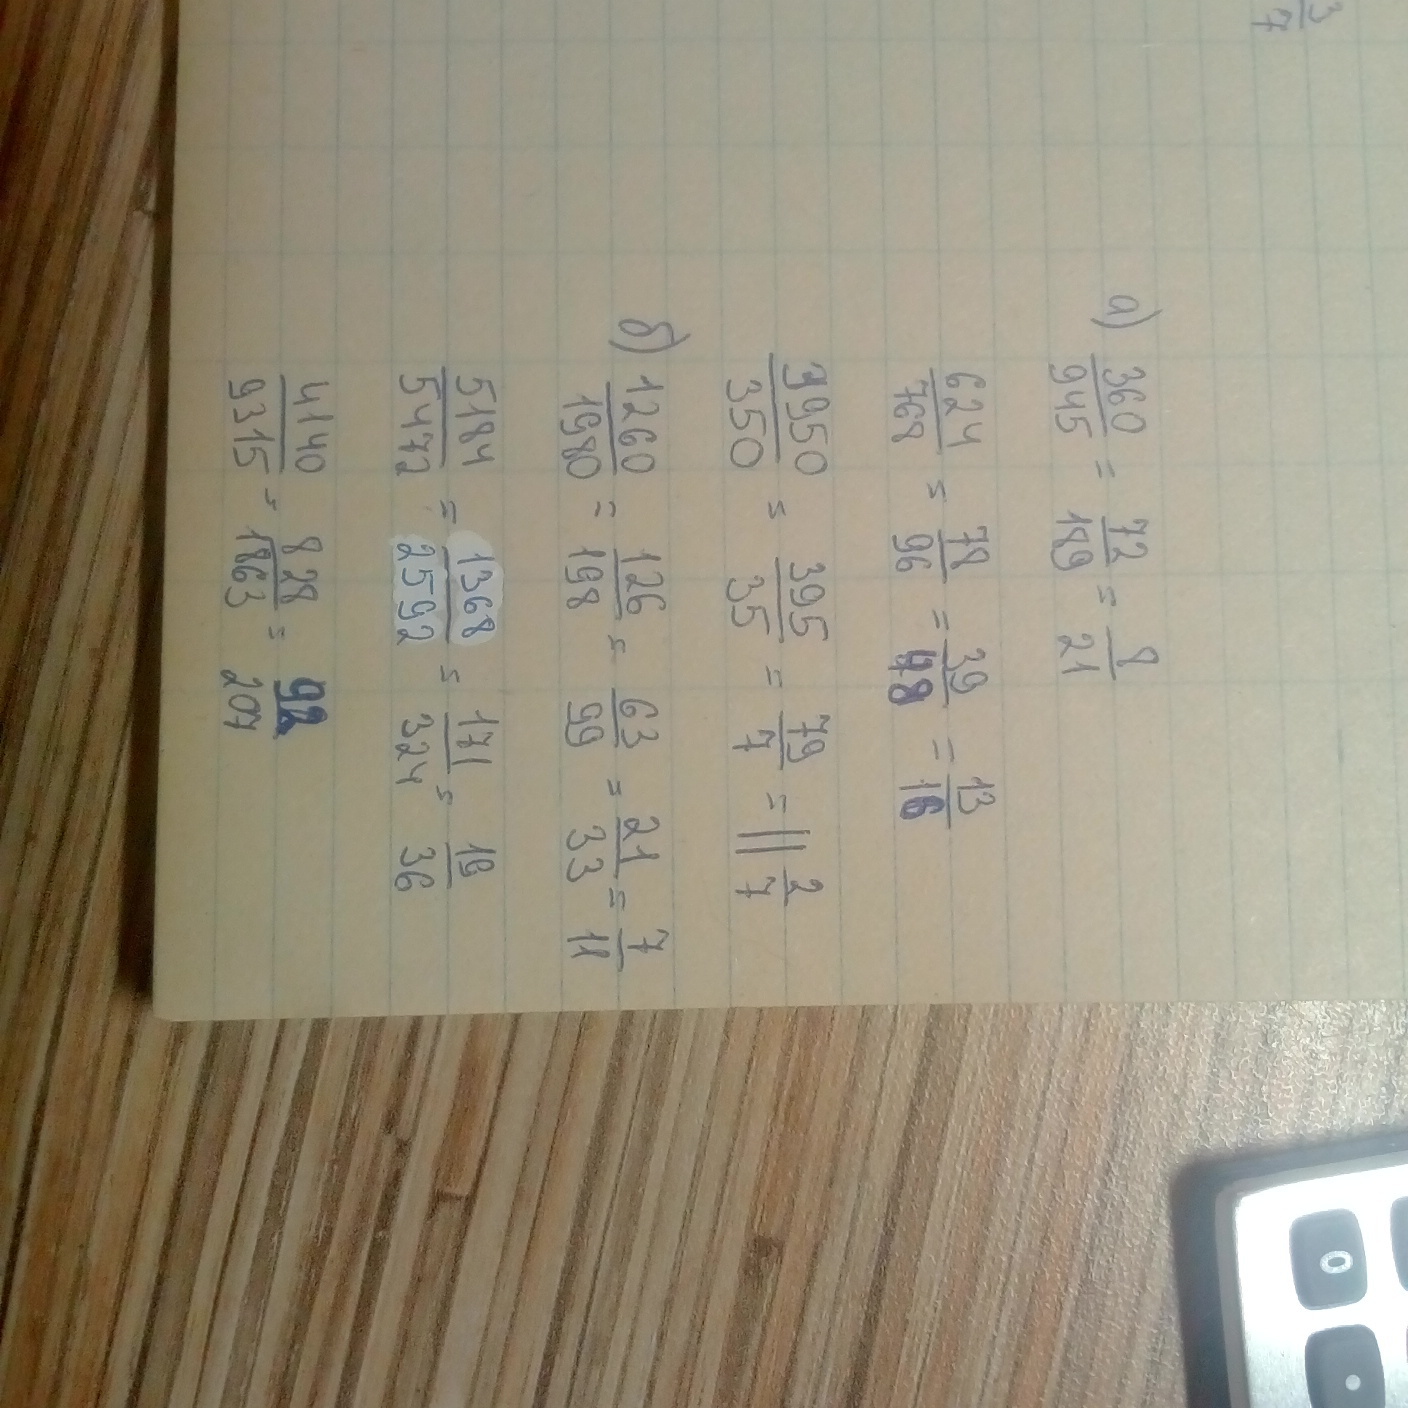 3/7
а) 360/945 = 72/189 = 8/21
624/768 = 78/96 = 39/48 = 13/16
3950/350 = 395/35 = 79/7 = 11 2/7
б) 1260/1980 = 126/198 = 63/99 = 21/33 = 7/11
5184/5472 = 1368/2592 = 171/324 = 19/36
4140/9315 = 828/1863 = 92/207
0
.